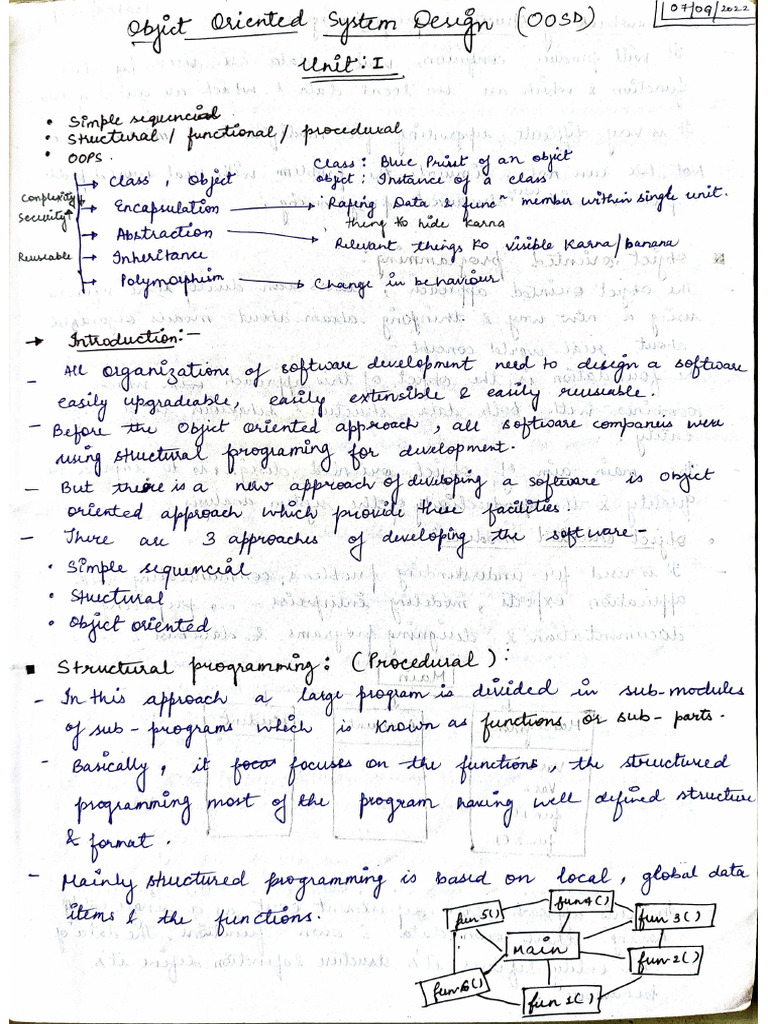 Object Oriented System Design (OOSD)
07/09/2022
Unit: I
• Simple sequencial
• Structural / functional / procedural
• OOPS.
Class, Object
Class: Blue Print of an object
object: Instance of a class
Complexity ↓
Security ↑
Encapsulation → Raping Data & funcⁿ member within single unit.
thing ko hide karna
Abstraction → Relevant things ko visible karna/banana
Reuseable
Inheritance
Polymorphism → Change in behaviour
→ Introduction:-
- All organizations of software development need to design a software
easily upgradeable, easily extensible & easily reuseable.
- Before the Object Oriented approach, all software companies were
using structural programing for development.
- But there is a new approach of developing a software is object
oriented approach which provide these facilities.
- There are 3 approaches of developing the software-
• Simple sequencial
• Structural
• Object oriented
▪ Structural programming: (Procedural):
- In this approach a large program is divided in sub-modules
of sub-programs which is known as functions or sub-parts.
- Basically, it focus focuses on the functions, the structured
programming most of the program having well defined structure
& format.
- Mainly structured programming is based on local, global data
items & the functions.
fun5()
fun4()
fun3()
Main
fun2()
fun6()
fun1()